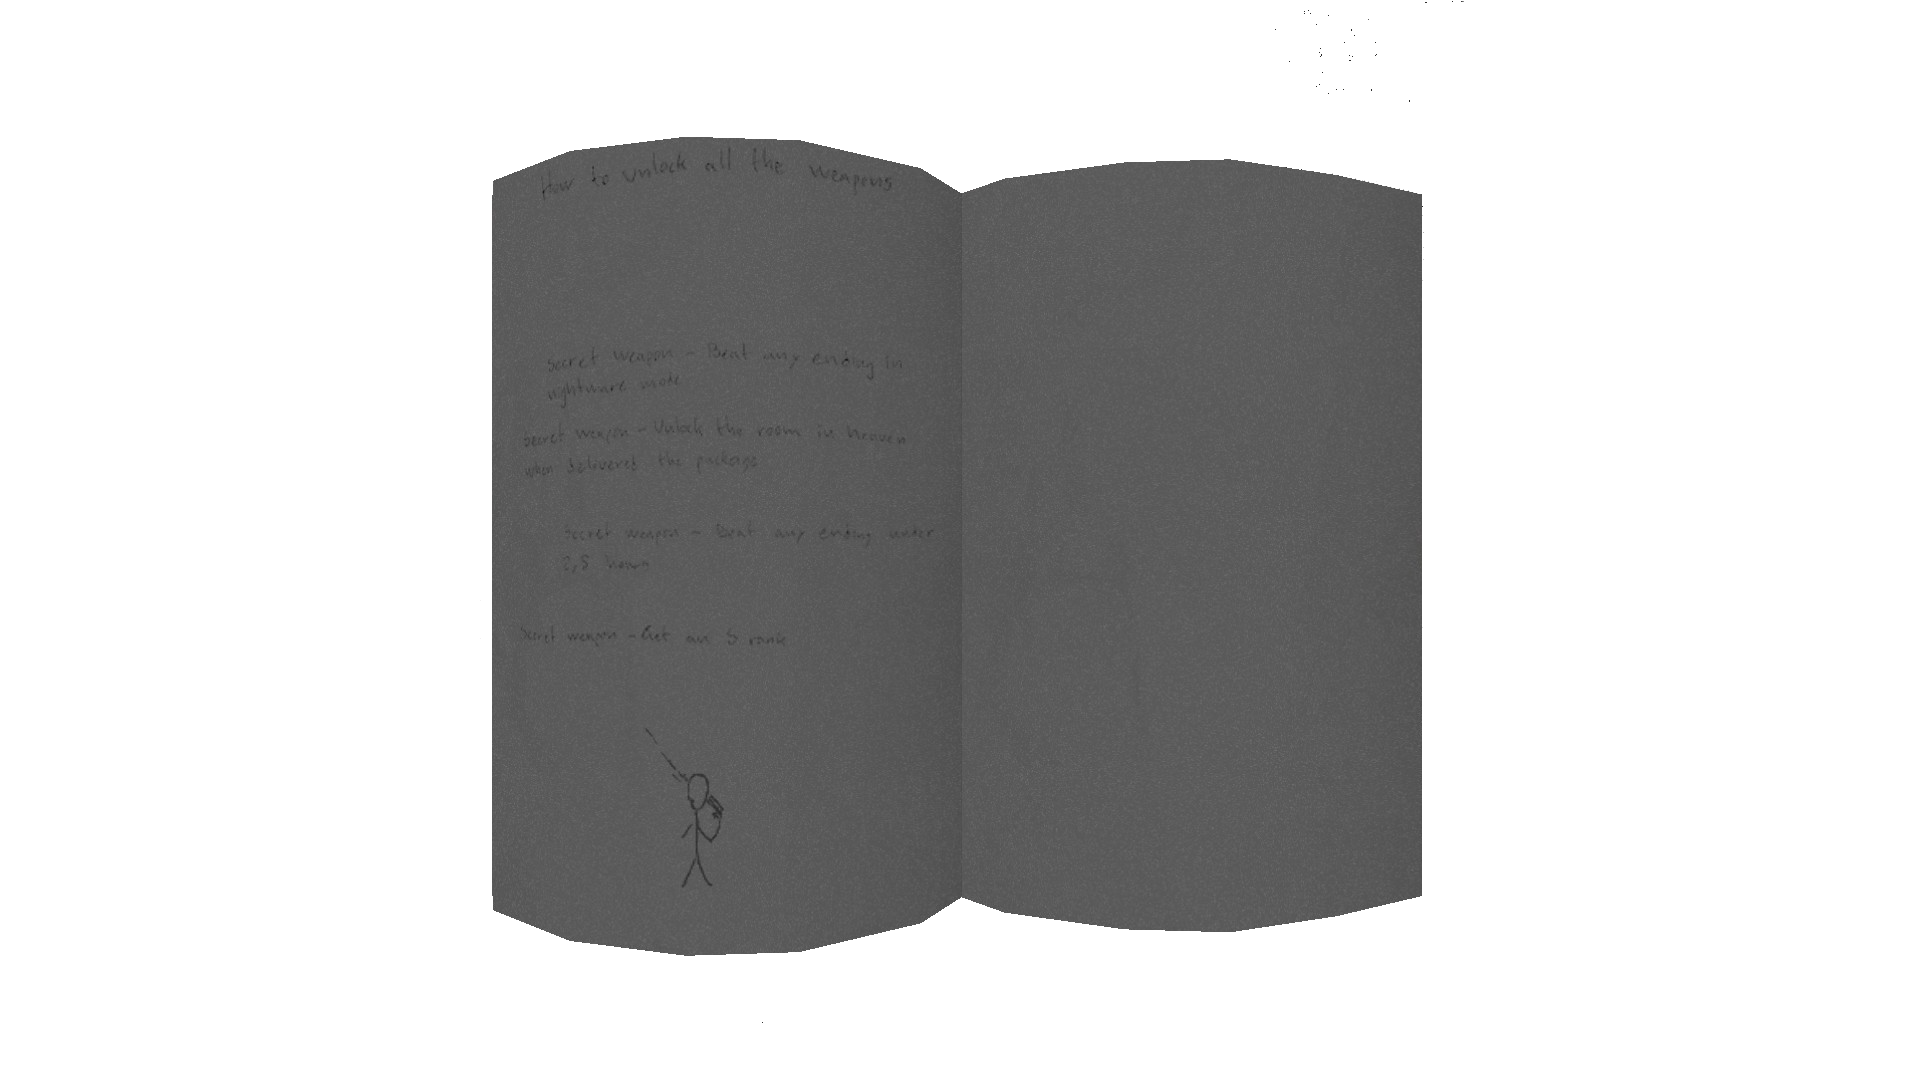 How to unlock all the weapons
Secret weapon - Beat any ending in
nightmare mode
Secret weapon - Unlock the room in heaven
when delivered the package
Secret weapon - Beat any ending under
2,5 hours
Secret weapon - Get an S rank